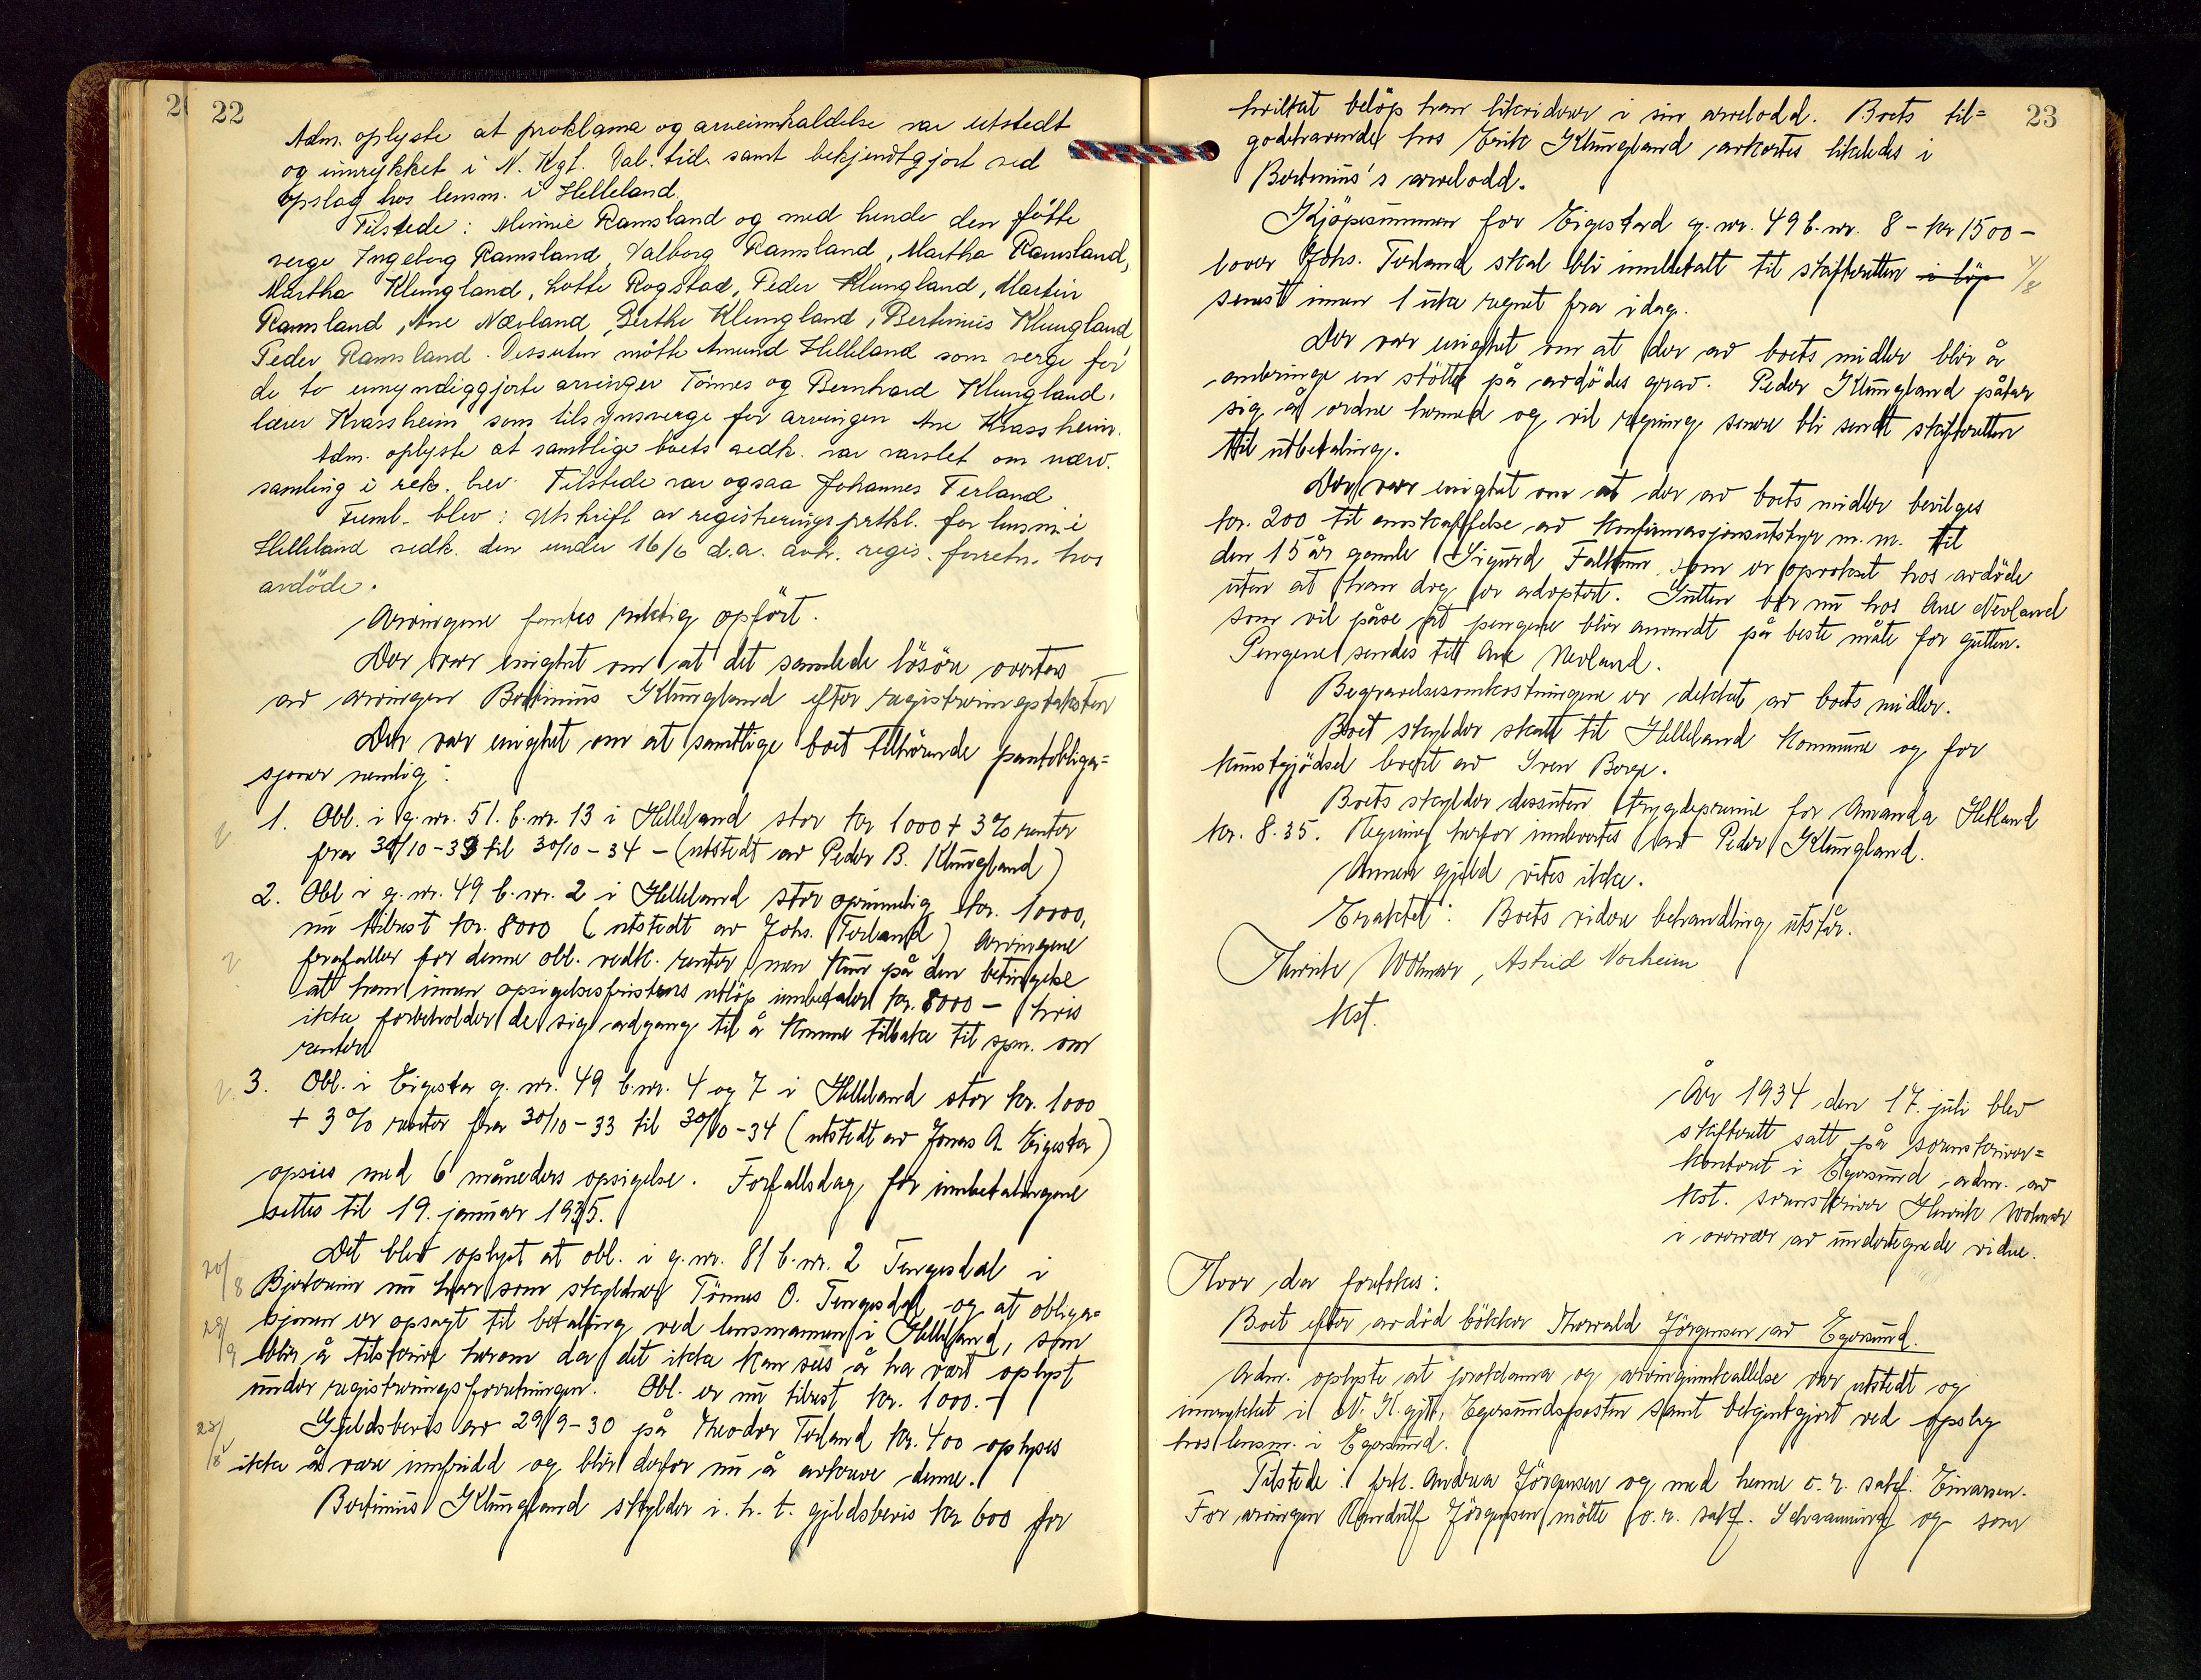 22
Adm. oplyste at proklama og arveinnkaldelse var utstedt
og innrykket i N. Kgl. Dal. tid. samt bekjendtgjort ved
opslag hos lensm. i Helleland.
Tilstede: Minnie Ramsland og med hende den fötte
verge Ingeborg Ramsland, Valborg Ramsland, Martha Ramsland,
Martha Klungland, Lotte Rogstad, Peder Klungland, Martin
Ramsland, Ane Nævland, Berthe Klungland, Bertinius Klungland
Peder Ramsland. Dessuten mötte Amund Helleland som verge for
de to umyndiggjorte arvinger Tönnes og Bernhard Klungland,
lærer Krassheim som tilsynsverge for arvingen Ane Krassheim.
Adm. oplyste at samtlige boets vedk. var varslet om nærv.
samling i rek. brev. Tilstede var ogsaa Johannes Terland
Fremb. blev: Utskrift av registreringsprtkl. for lensm. i
Helleland vedk. den under 16/6 d.a. avh. regis. forretn. hos
avdöde.
Arvingene fantes riktig opfört.
Der var enighet om at det samlede lösöre overtas
av arvingen Bertinius Klungland efter registreringstaksten
Der var enighet om at samtlige boet tilhörende pantobliga=
sjoner nemlig:
1. Obl. i g.nr. 51. b.nr. 13 i Helleland stor kr 1000 + 3% renter
fra 30/10-33 til 30/10-34 - (utstedt av Peder B. Klungland)
2. Obl i g.nr. 49 b.nr. 2 i Helleland stor oprinnelig kr. 10000,
nu tilrest kr. 8000 (utstedt av Johs. Terland) Arvingene
frafaller for denne obl. vedk. renter men kun på den betingelse
at han innen opsigelsesfristens utlöp innbetaler kr. 8000 - hvis
ikke forbeholder de sig adgang til å komme tilbake til spm. om
renter
3. Obl. i Eigesta g.nr. 49 b.nr. 4 og 7 i Helleland stor kr. 1000
+ 3% renter fra 30/10-33 til 30/10-34 (utstedt av Jonas A. Eigesta)
opsies med 6 måneders opsigelse. Forfallsdag for innbetalingene
settes til 19. januar 1935.
20/8
Det blev oplyst at obl. i g.nr. 81 b.nr. 2 Tengesdal i
Bjerkreim nu har som skyldner Tönnes O. Tengesdal og at obliga=
29/9
sjonen er opsagt til betaling ved lensmannen i Helleland, som
blir å tilskrive herom da det ikke kan sees å ha vært oplyst
under registreringsforretningen. Obl. er nu tilrest kr. 1000.-
23/8
Gjeldsbevis av 29/9-30 på Theodor Terland kr. 400 oplyses
ikke å være innfridd og blir derfor nu å avkreve denne.
Bertinius Klungland skylder i.h.t. gjeldsbevis kr 600 for
23
hvilket belöp han likviderer i sin arvelodd. Boets til=
godehavende hos Erik Klungland avkortes likeledes i
Bertinius's arvelodd.
Kjöpesummen for Eigestad g.nr. 49 b.nr. 8 - kr 1500 -
lover Johs. Terland skal bli innbetalt til skifteretten i löp 4/8
senest innen 1 uke regnet fra idag.
Der var enighet om at der av boets midler blir å
anbringe en stötte på avdödes grav. Peder Klungland påtar
sig å ordne hermed og vil regning senere bli sendt skifteretten
til utbetaling.
Der var enighet om at der av boets midler bevilges
kr. 200 til anskaffelse av konfirmasjonsutstyr m.m. til
den 15 år gamle Sigurd Falkum som er oprokset hos avdöde
uten at han dog er adoptert. Gutten bor nu hos Ane Nevland
som vil påse at pengene blir anvendt på beste måte for gutten.
Pengene sendes til Ane Nevland.
Begravelsesomkostningene er dekket av boets midler.
Boet skylder skatt til Helleland kommune og for
kunstgjödsel levert av Sven Berge.
Boets skylder dessuten trygdepremie for Amanda Hetland
kr. 8.35. Regning herfor innleveres av Peder Klungland.
Annen gjeld vites ikke.
Eraktet: Boets videre behandling utstår.
Henrik Wolmer, Astrid Norheim
kst.
År 1934 den 17. juli blev
skifterett satt på sorenskriver=
kontoret i Egersund, adm. av
kst. sorenskriver Henrik Wolmer
i overvær av undertegnede vidne.
Hvor da foretokes:
Boet efter avdöd bökker Thorvald Jörgensen av Egersund.
Adm. oplyste at proklama og arvinginnkallelse var utstedt og
innrykket i N. K.gjt., Egersundsposten samt bekjentgjort ved opslag
hos lensm. i Egersund.
Tilstede: frk. Andrea Jörgensen og med henne o.r. sakf. Einarsen.
For arvingen Randulf Jörgensen mötte o.r. sakf. Schaanning og som